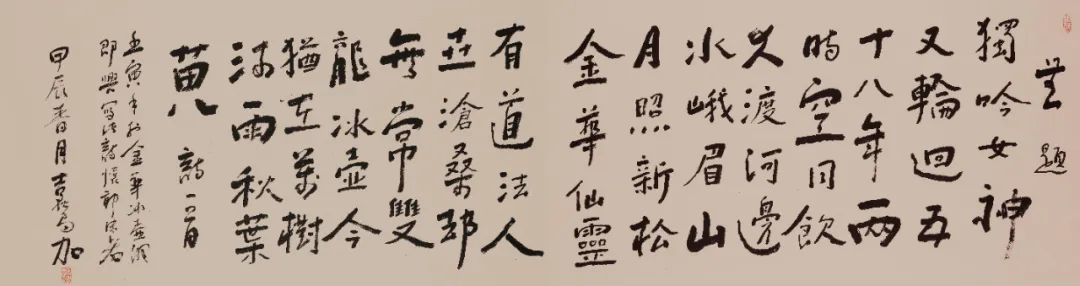 無題
獨吟女神
又輪迴五
十八年兩
時空同飲
大渡河邊
水峨眉山
月照新松
金華仙靈
有道法人
世滄桑却
無常雙
龍冰壺今
猶在萬樹
沐雨秋葉
黄 詩一首
壬寅年於金華冰壺洞
即興寫此詩懷郭沫若
甲辰春月吉狄馬加